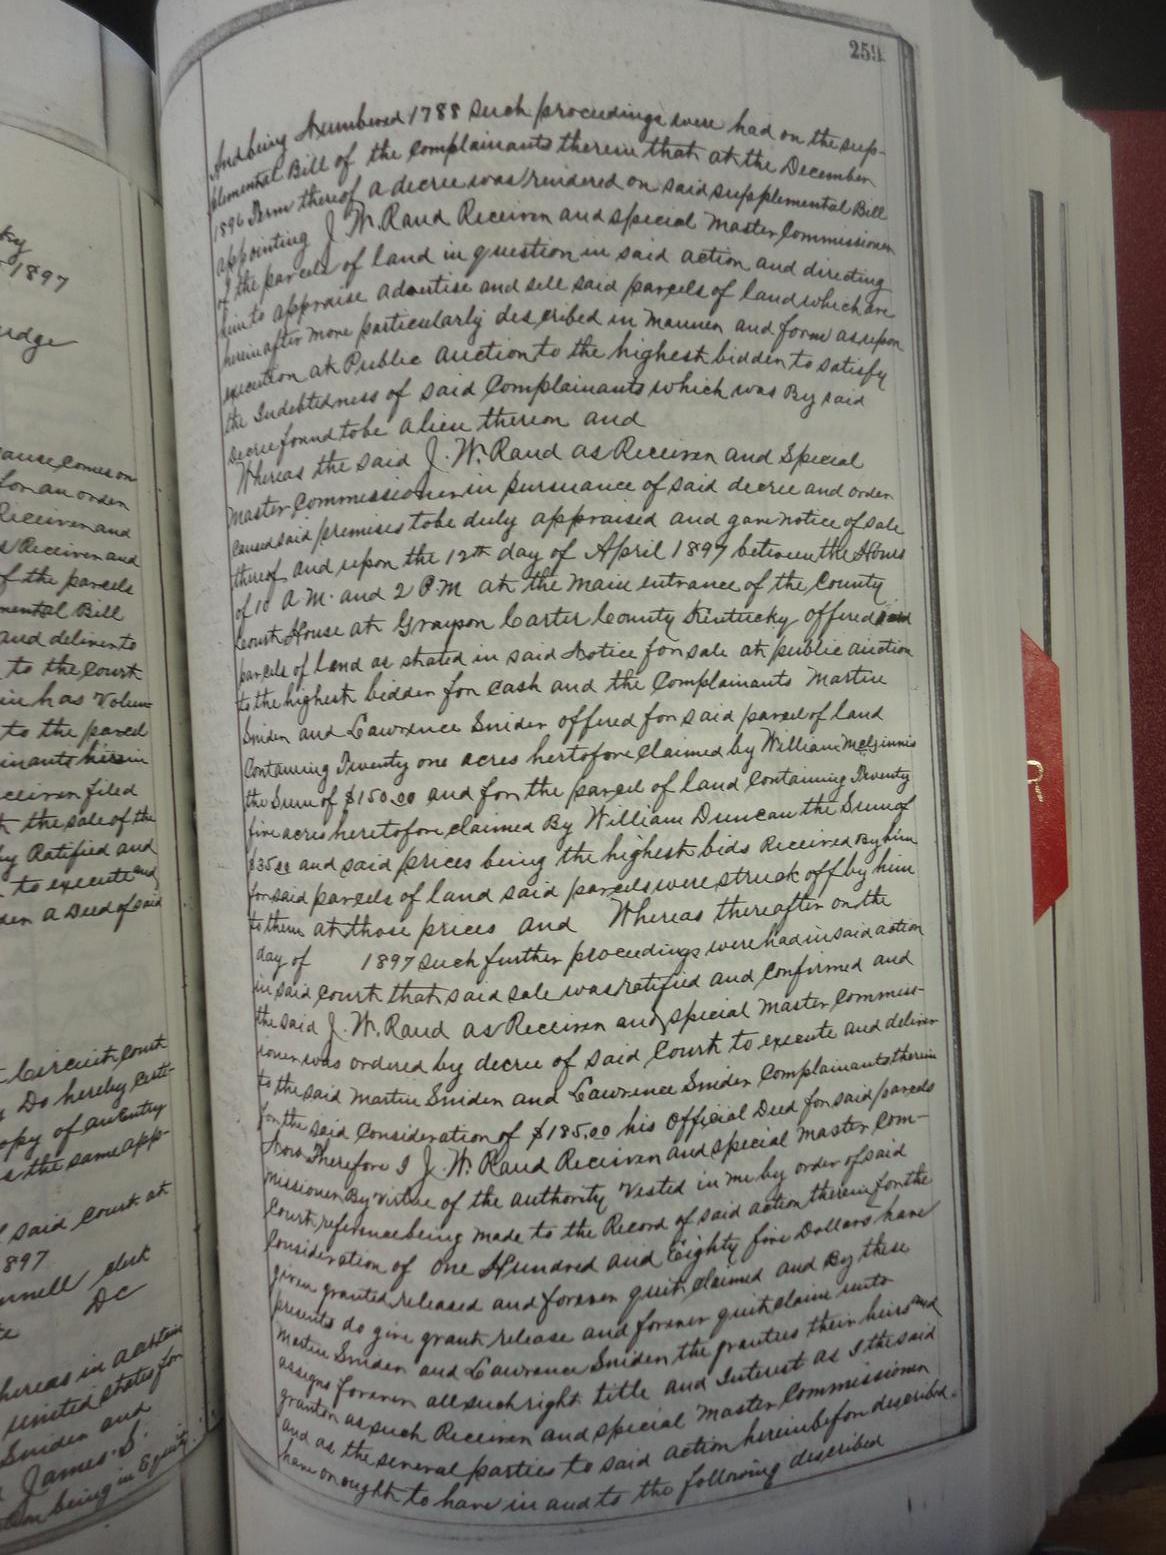 ky
1897
udge
ause comes on
for an order
Receiver and
s Receiver and
of the parcels
mental Bill
and deliver to
to the Court
in has Volun-
to the parcel
inants herein
ceiver filed
the sale of the
by Ratified and
to execute and
den a Deed of said
Circuit Court
Do hereby certi-
opy of an Entry
s the same app-
said Court at
897
nnell clerk
DC
hereas in a certain
united states for
Sniden and
James S.
being in Equity
259
And being Numbered 1788 Such proceedings were had on the sup-
plemental Bill of the Complainants therein that at the December
1896 Term thereof a decree was rendered on said supplemental Bill
appointing J. W. Rand Receiver and special Master Commissioner
of the parcels of land in question in said action and directing
him to appraise advertise and sell said parcels of land which are
hereinafter more particularly described in manner and form as upon
execution at Public auction to the highest bidder to satisfy
the Indebtedness of said Complainants which was By said
decree found to be a lien thereon and
Whereas the said J. W. Rand as Receiver and Special
Master Commissioner in pursuance of said decree and order
caused said premises to be duly appraised and gave notice of sale
thereof and upon the 12th day of April 1897 between the Hours
of 10 A.M. and 2 P.M at the main entrance of the County
Court House at Grayson Carter County Kentucky offered said
parcels of land as stated in said Notice for sale at public auction
to the highest bidder for cash and the Complainants Martin
Sniden and Lawrence Sniden offered for said parcel of land
Containing Twenty one acres hertofore claimed by William McGinnis
the Sum of $150.00 and for the parcel of land Containing Twenty
five acres heretofore claimed By William Duncan the Sum of
$35.00 and said prices being the highest bids Received By him
for said parcels of land said parcels were struck off by him
to them at those prices and Whereas thereafter on the
day of 1897 such further proceedings were had in said action
in said Court that said sale was ratified and confirmed and
the said J. W. Rand as Receiver and special Master Commiss-
ioner was ordered by decree of said Court to execute and deliver
to the said Martin Sniden and Lawrence Sniden Complainants therein
for the said Consideration of $185.00 his Official Deed for said parcels
Now Therefore I J. W. Rand Receiver and special Master Com-
missioner By virtue of the authority Vested in me by order of said
Court, reference being made to the Record of said action therein for the
Consideration of One Hundred and Eighty five Dollars have
given granted, released and forever quit claimed and By these
presents do give grant release and forever quit claim unto
Martin Sniden and Lawrence Sniden the grantees their heirs and
assigns forever all such right title and Interest as I the said
grantor as such Receiver and special Master Commissioner
and as the several parties to said action hereinbefore described.
have or ought to have in and to the following described
R